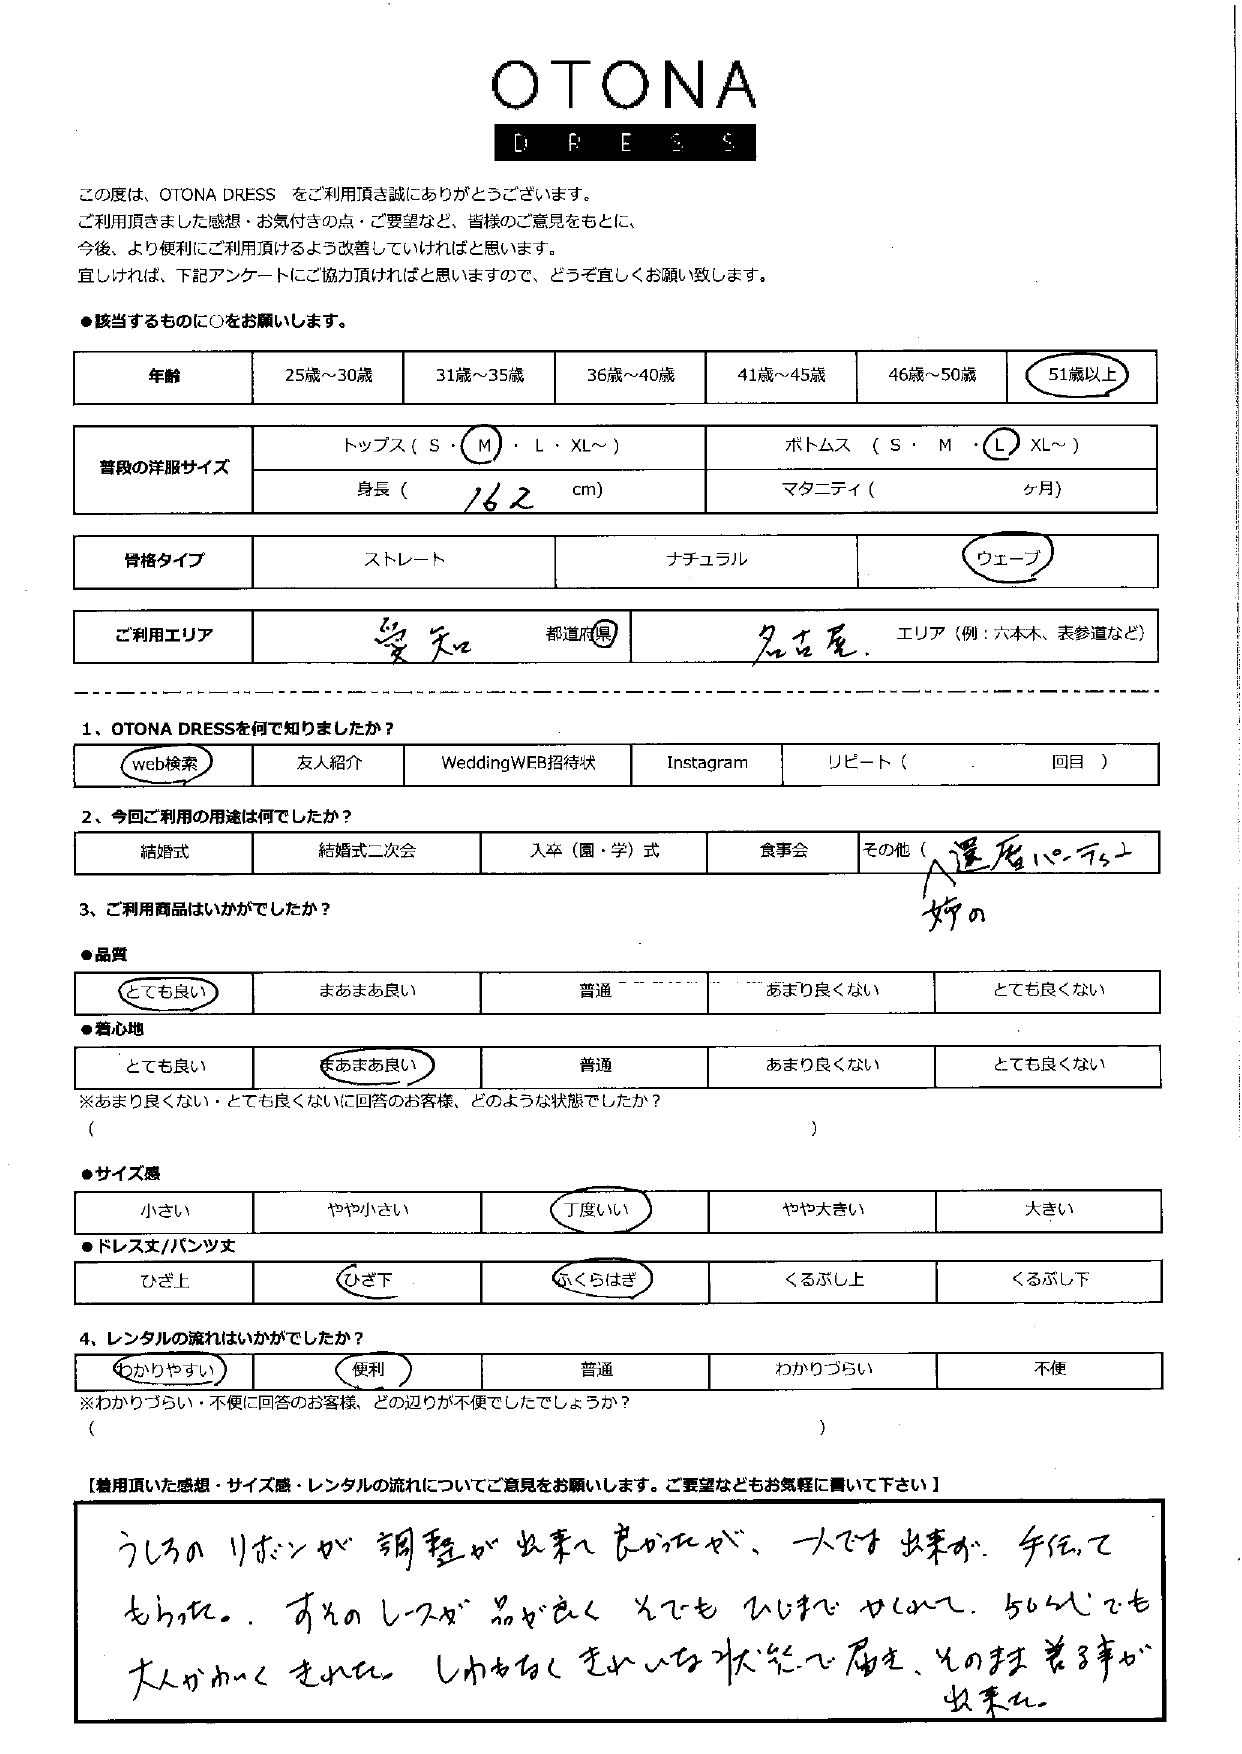 OTONA
DRESS
この度は、OTONA DRESS をご利用頂き誠にありがとうございます。
ご利用頂きました感想・お気付きの点・ご要望など、皆様のご意見をもとに、
今後、より便利にご利用頂けるよう改善していければと思います。
宜しければ、下記アンケートにご協力頂ければと思いますので、どうぞ宜しくお願い致します。
●該当するものに○をお願いします。
年齢 25歳～30歳 31歳～35歳 36歳～40歳 41歳～45歳 46歳～50歳 51歳以上
普段の洋服サイズ トップス ( S ・ M ・ L ・ XL～ ) ボトムス ( S ・ M ・ L XL～ )
身長 ( 162 cm) マタニティ ( ヶ月)
骨格タイプ ストレート ナチュラル ウェーブ
ご利用エリア 愛知 都道府県 名古屋. エリア（例：六本木、表参道など）
1、OTONA DRESSを何で知りましたか？
web検索 友人紹介 WeddingWEB招待状 Instagram リピート（ 回目 ）
2、今回ご利用の用途は何でしたか？
結婚式 結婚式二次会 入卒（園・学）式 食事会 その他（ 還暦パーティー
姉の
3、ご利用商品はいかがでしたか？
●品質
とても良い まあまあ良い 普通 あまり良くない とても良くない
●着心地
とても良い まあまあ良い 普通 あまり良くない とても良くない
※あまり良くない・とても良くないに回答のお客様、どのような状態でしたか？
( )
●サイズ感
小さい やや小さい 丁度いい やや大きい 大きい
●ドレス丈/パンツ丈
ひざ上 ひざ下 ふくらはぎ くるぶし上 くるぶし下
4、レンタルの流れはいかがでしたか？
わかりやすい 便利 普通 わかりづらい 不便
※わかりづらい・不便に回答のお客様、どの辺りが不便でしたでしょうか？
( )
【着用頂いた感想・サイズ感・レンタルの流れについてご意見をお願いします。ご要望などもお気軽に書いて下さい】
うしろの リボンが 調整が 出来て 良かったが、一人でも 出来が. 手伝って
もらった。. すその レースが 品が良く そでも ひじまで かくれて. 50代でも
大人かわいく きれた。 しわもなく きれいな状態で 届き、そのまま 着る事が
出来た。